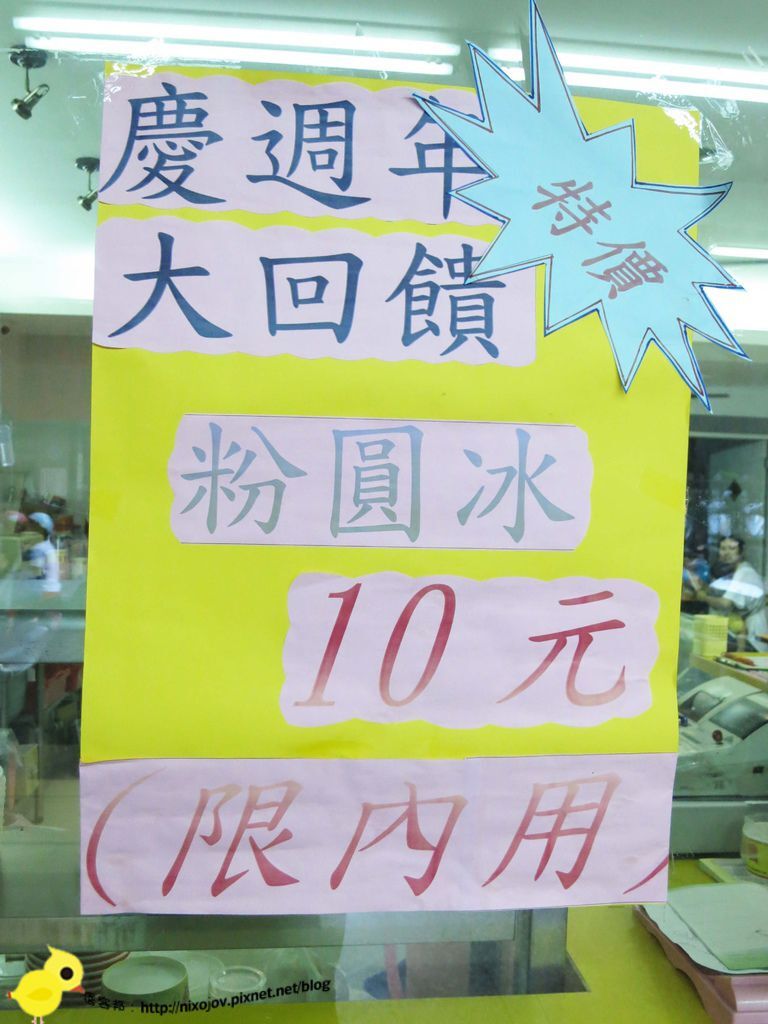 慶週年
特價
大回饋
粉圓冰
10元
(限內用)
痞客邦：http://nixojov.pixnet.net/blog